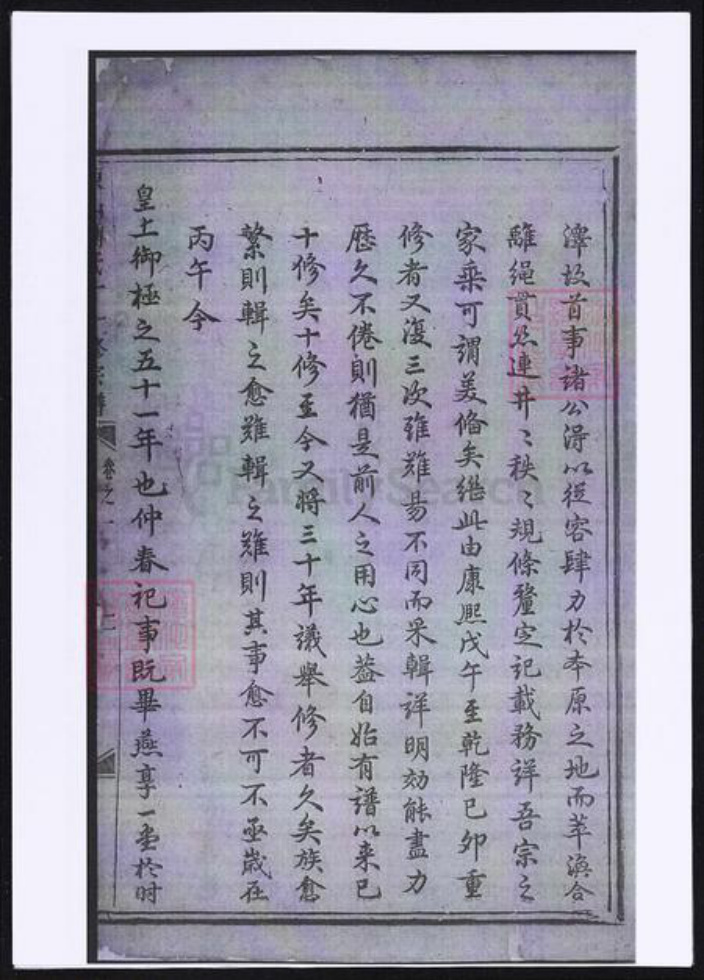 澤故首事諸公得以從容肆力於本原之地而萃渙合
離繩貫絲連井〻秩〻規條釐定記載務詳吾宗之
家乘可謂美備矣繼此由康熙戊午至乾隆己卯重
修者又復三次雖難易不同而采輯詳明効能盡力
歷久不倦則猶是前人之用心也蓋自始有譜以来已
十修矣十修至今又將三十年議舉修者久矣族愈
繁則輯之愈難輯之難則其事愈不可不亟歲在
丙午今
皇上御極之五十一年也仲春祀事既畢燕享一堂於时
卷之一
二
FamilySearch